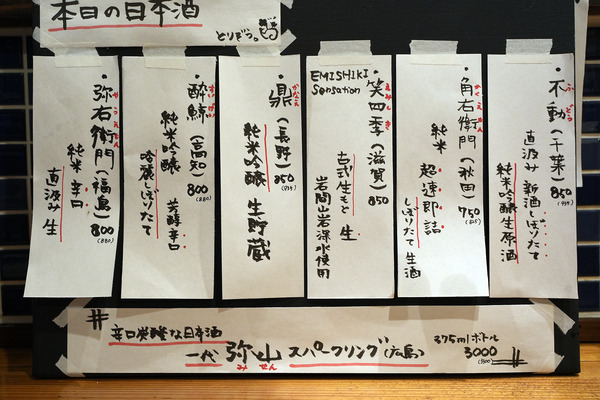 本日の日本酒
とりぞう。
・不動(千葉)850
ふどう
(935)
直汲み 新酒しぼりたて
純米吟醸生原酒
・角右衛門(秋田)
かくえもん
750
(825)
純米 超速即詰
しぼりたて生酒
EMISHIKI
Sensation
・笑四季(滋賀)
えみしき
850
古式生もと 生
岩間山岩深水使用
・鼎(長野)
かなえ
850
(935)
純米吟醸 生貯蔵
・酔鯨(高知)
800
(880)
純米吟醸 芳醇辛口
吟麗しぼりたて
・弥右衛門(福島)
やうえもん
800
(880)
純米 辛口
直汲み 生
辛口炭酸な日本酒
一代 弥山 スパークリング(広島)
みせん
375mlボトル
3000